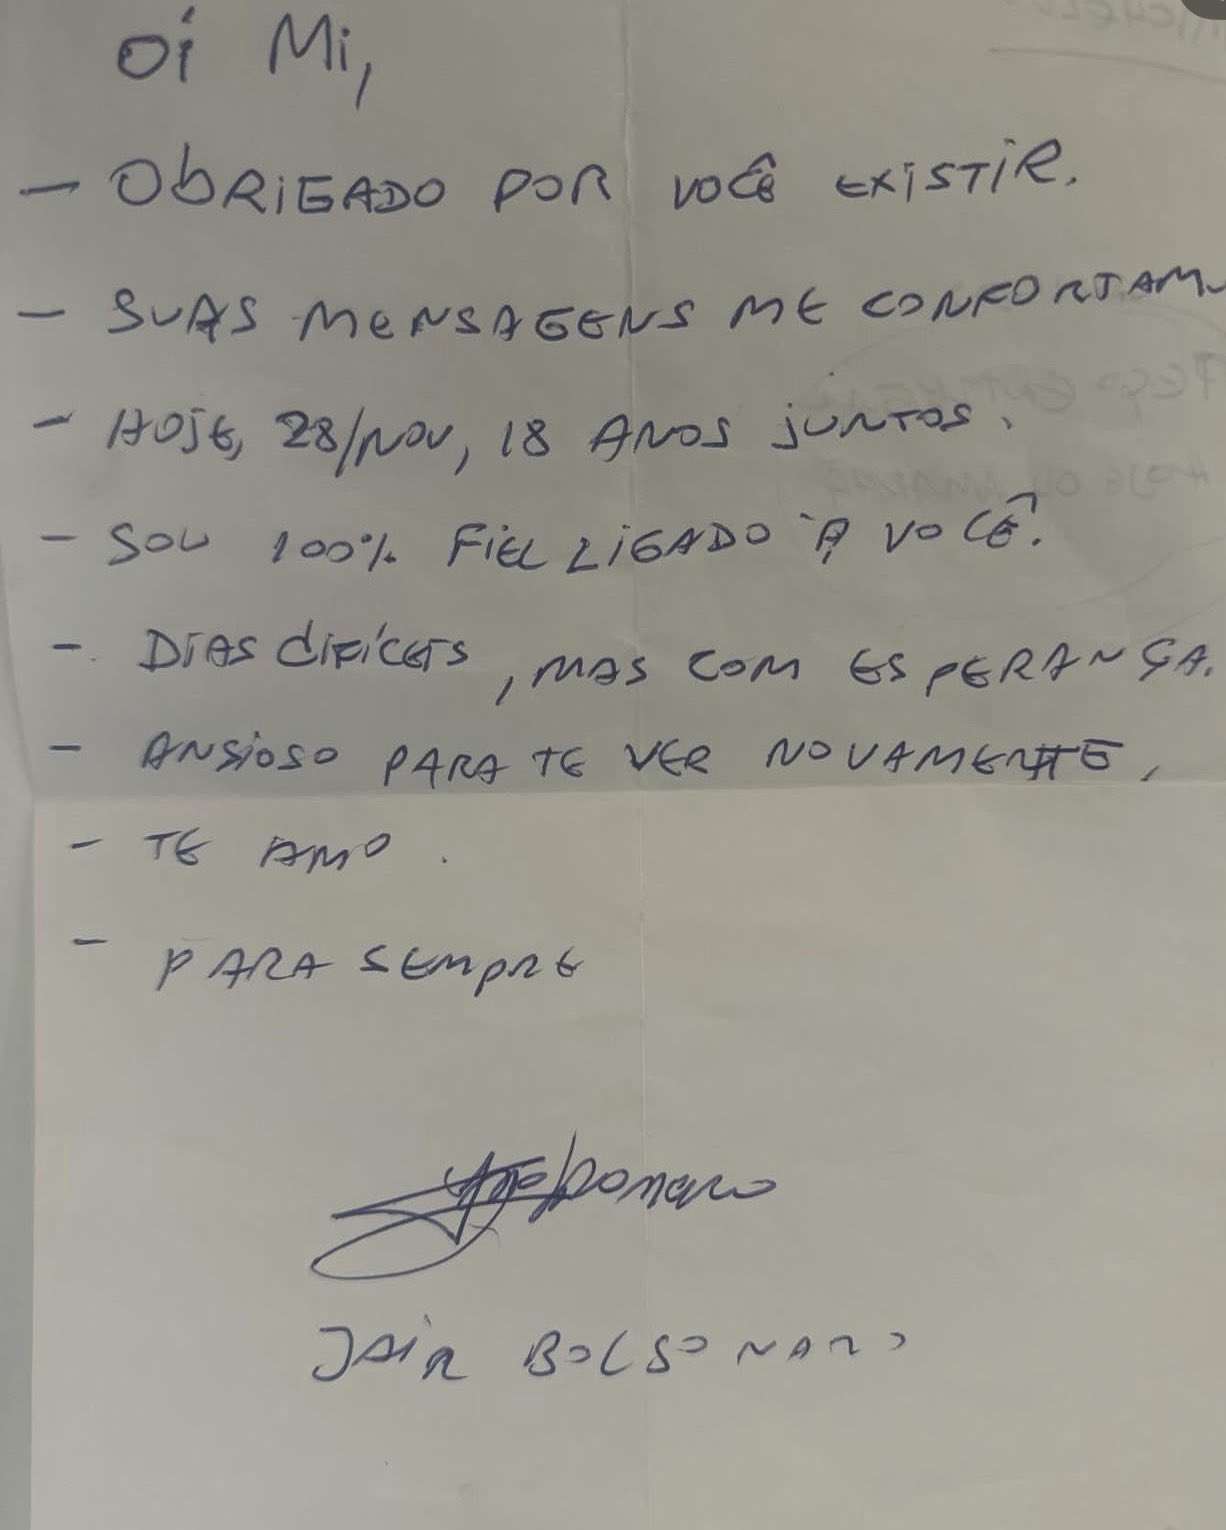 Oi Mi,
- OBRIGADO POR VOCÊ EXISTIR.
- SUAS MENSAGENS ME CONFORTAM.
- HOJE, 28/NOV, 18 ANOS JUNTOS.
- SOU 100% FIEL LIGADO À VOCÊ.
- DIAS DIFÍCEIS, MAS COM ESPERANÇA.
- ANSIOSO PARA TE VER NOVAMENTE,
- TE AMO.
- PARA SEMPRE
JAIR BOLSONARO